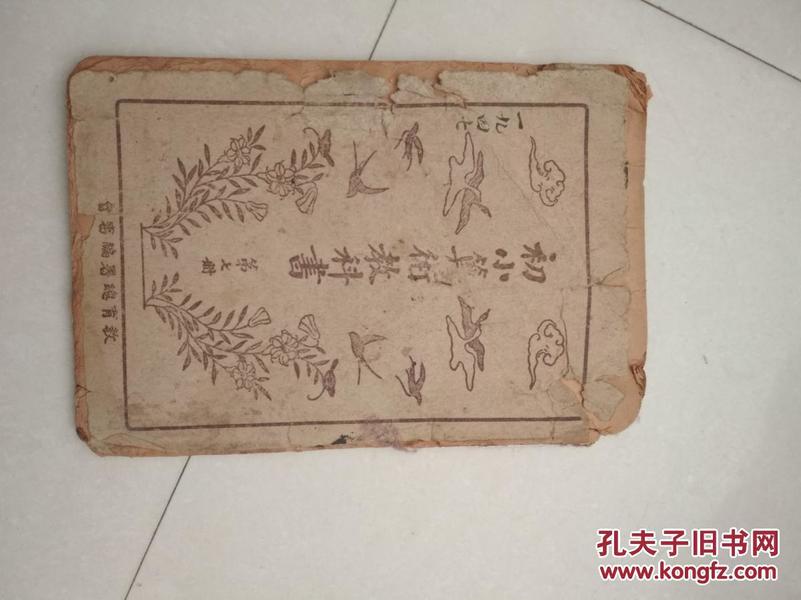 一九四七
初小算術教科書
第七册
教育總署編審會
孔夫子旧书网
www.kongfz.com